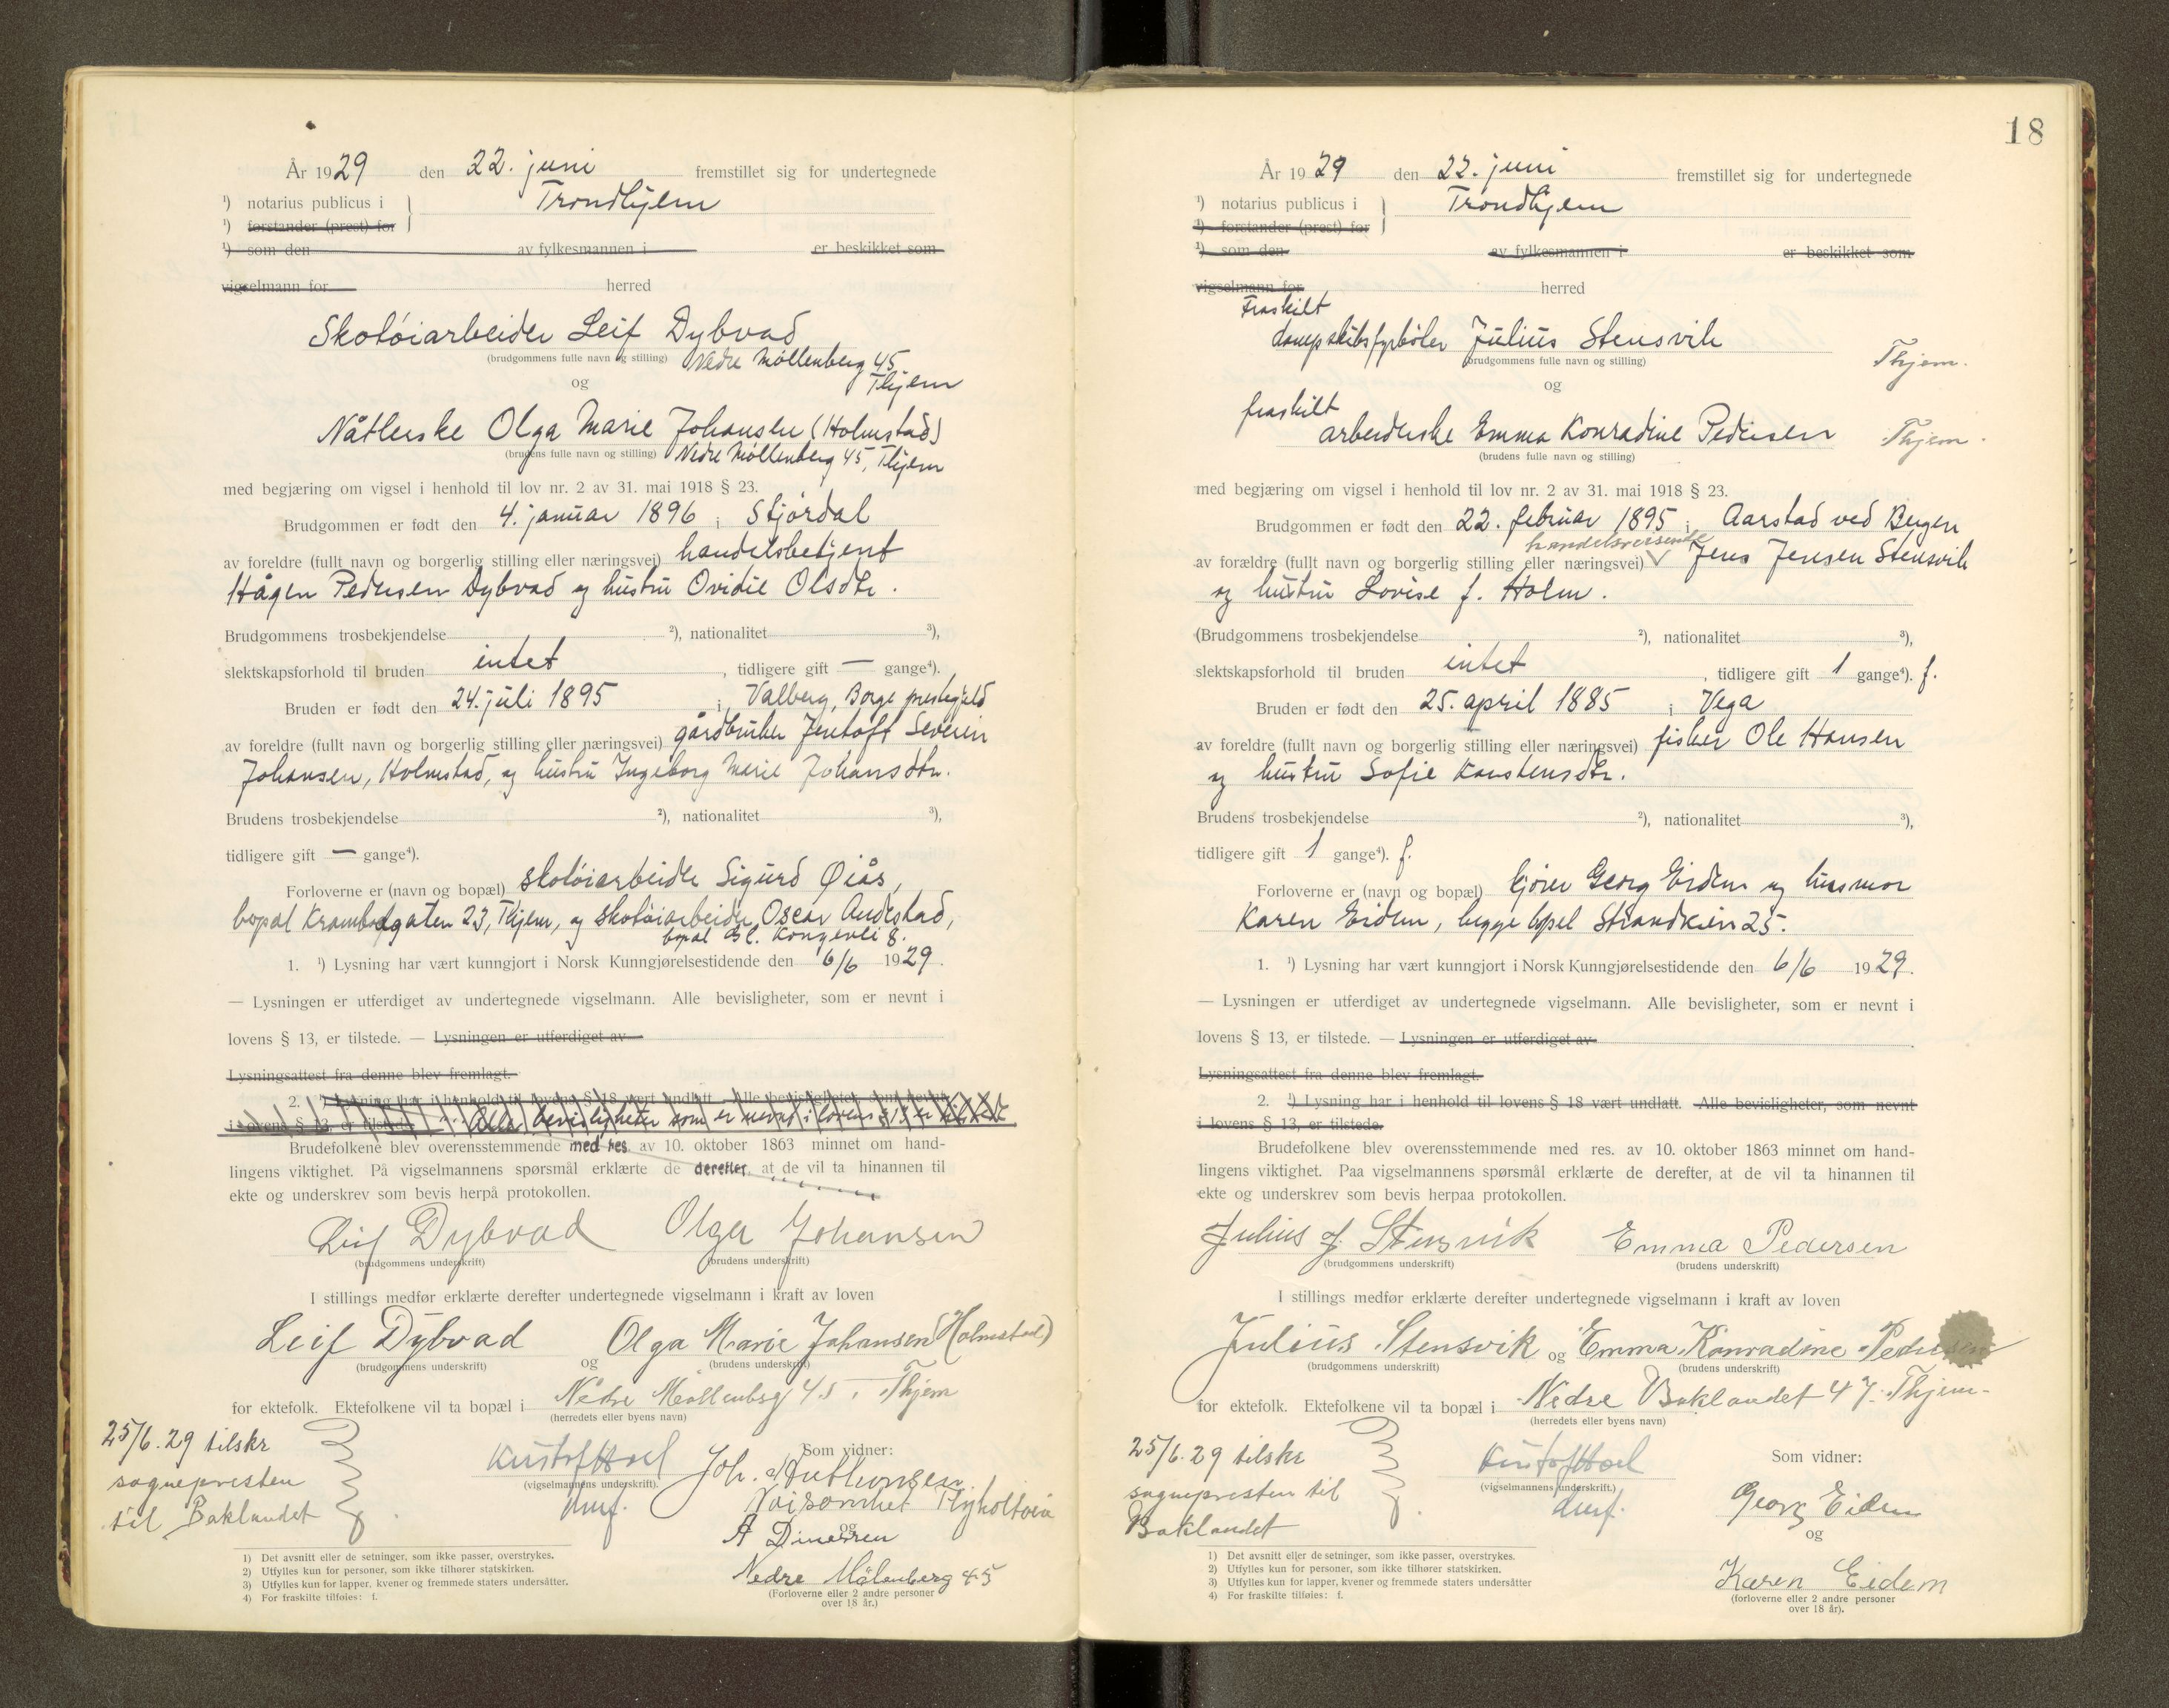 År 1929 den 22. juni fremstillet sig for undertegnede
¹) notarius publicus i Trondhjem
¹) forstander (prest) for
¹) som den av fylkesmannen i er beskikket som
vigselmann for herred
Skotøiarbeider Leif Dybvad
(brudgommens fulle navn og stilling) Nedre Møllenberg 45
og Thjem
Nåtlerske Olga Marie Johansen (Holmstad)
(brudens fulle navn og stilling) Nedre Møllenberg 45, Thjem
med begjæring om vigsel i henhold til lov nr. 2 av 31. mai 1918 § 23.
Brudgommen er født den 4. januar 1896 i Stjørdal
av foreldre (fullt navn og borgerlig stilling eller næringsvei) handelsbetjent
Hågen Pedersen Dybvad og hustru Ovidie Olsdtr.
Brudgommens trosbekjendelse ²), nationalitet ³),
slektskapsforhold til bruden intet , tidligere gift — gange⁴).
Bruden er født den 24. juli 1895 i Valberg, Borge prestegjeld
av foreldre (fullt navn og borgerlig stilling eller næringsvei) gårdbruker Jentoft Severin
Johansen, Holmstad, og hustru Ingeborg Marie Johansdtr.
Brudens trosbekjendelse ²), nationalitet ³),
tidligere gift — gange⁴).
Forloverne er (navn og bopæl) skotøiarbeider Sigurd Øiås,
bopal Krambodgaten 23, Thjem, og skotøiarbeider Oscar Andestad,
bopal Gl. Kongevei 8.
1. ¹) Lysning har vært kunngjort i Norsk Kunngjørelsestidende den 6/6 1929.
— Lysningen er utferdiget av undertegnede vigselmann. Alle bevisligheter, som er nevnt i
lovens § 13, er tilstede. — Lysningen er utferdiget av
Lysningsattest fra denne blev fremlagt.
2. ¹) Lysning har i henhold til lovens § 18 vært undlatt. Alle bevisligheter, som nevnt
i lovens § 13, er tilstede. Alle bevisligheter som er nevnt i lovens § 13 er tilstede
Brudefolkene blev overensstemmende med res. av 10. oktober 1863 minnet om hand-
lingens viktighet. På vigselmannens spørsmål erklærte de derefter, at de vil ta hinannen til
ekte og underskrev som bevis herpå protokollen.
Leif Dybvad Olga Johansen
(brudgommens underskrift) (brudens underskrift)
I stillings medfør erklærte derefter undertegnede vigselmann i kraft av loven
Leif Dybvad og Olga Marie Johansen (Holmstad)
(brudgommens underskrift) (brudens underskrift)
for ektefolk. Ektefolkene vil ta bopæl i Nedre Møllenberg 45, Thjem
(herredets eller byens navn)
25/6.29 tilskr
sognepresten
til Baklandet
(vigselmannens underskrift).
Som vidner:
Joh.
og
Nedre Mølenberg 45
(Forloverne eller 2 andre personer
over 18 år.)
1) Det avsnitt eller de setninger, som ikke passer, overstrykes.
2) Utfylles kun for personer, som ikke tilhører statskirken.
3) Utfylles kun for lapper, kvener og fremmede staters undersåtter.
4) For fraskilte tilføies: f.
18
År 1929 den 22. juni fremstillet sig for undertegnede
¹) notarius publicus i Trondhjem
¹) forstander (prest) for
¹) som den av fylkesmannen i er beskikket som
vigselmann for herred
Fraskilt
dampskibsfyrbøter Julius Stensvik
(brudgommens fulle navn og stilling) Thjem.
og
fraskilt
arbeiderske Emma Konradine Pedersen Thjem.
(brudens fulle navn og stilling)
med begjæring om vigsel i henhold til lov nr. 2 av 31. mai 1918 § 23.
Brudgommen er født den 22. februar 1895 i Aarstad ved Bergen
handelsreisende
av forældre (fullt navn og borgerlig stilling eller næringsvei) Jens Jensen Stensvik
og hustru Lovise f. Holm.
(Brudgommens trosbekjendelse ²), nationalitet ³),
slektskapsforhold til bruden intet , tidligere gift 1 gange⁴). f.
Bruden er født den 25. april 1885 i Vega
av foreldre (fullt navn og borgerlig stilling eller næringsvei) fisker Ole Hansen
og hustru Sofie Karstensdtr.
Brudens trosbekjendelse ²), nationalitet ³),
tidligere gift 1 gange⁴). f.
Forloverne er (navn og bopæl) kjører Georg Eidem og husmor
Karen Eidem, begge bopel Strandveien 25.
1. ¹) Lysning har vært kunngjort i Norsk Kunngjørelsestidende den 6/6 1929.
— Lysningen er utferdiget av undertegnede vigselmann. Alle bevisligheter, som er nevnt i
lovens § 13, er tilstede. — Lysningen er utferdiget av
Lysningsattest fra denne blev fremlagt.
2. ¹) Lysning har i henhold til lovens § 18 vært undlatt. Alle bevisligheter, som nevnt
i lovens § 13, er tilstede.
Brudefolkene blev overensstemmende med res. av 10. oktober 1863 minnet om hand-
lingens viktighet. Paa vigselmannens spørsmål erklærte de derefter, at de vil ta hinannen til
ekte og underskrev som bevis herpaa protokollen.
Julius J. Stensvik Emma Pedersen
(brudgommens underskrift) (brudens underskrift)
I stillings medfør erklærte derefter undertegnede vigselmann i kraft av loven
Julius Stensvik og Emma Konradine Pedersen
(brudgommens underskrift) (brudens underskrift)
for ektefolk. Ektefolkene vil ta bopæl i Nedre Baklandet 47. Thjem.
(herredets eller byens navn)
25/6.29 tilskr
sognepresten til
Baklandet
(vigselmannens underskrift).
Som vidner:
Georg Eidem
og
Karen Eidem
(forloverne eller 2 andre personer
over 18 år).
1) Det avsnitt eller de setninger, som ikke passer, overstrykes.
2) Utfylles kun for personer, som ikke tilhører statskirken.
3) Utfylles kun for lapper, kvener og fremmede staters undersåtter
4) For fraskilte tilføies: f.